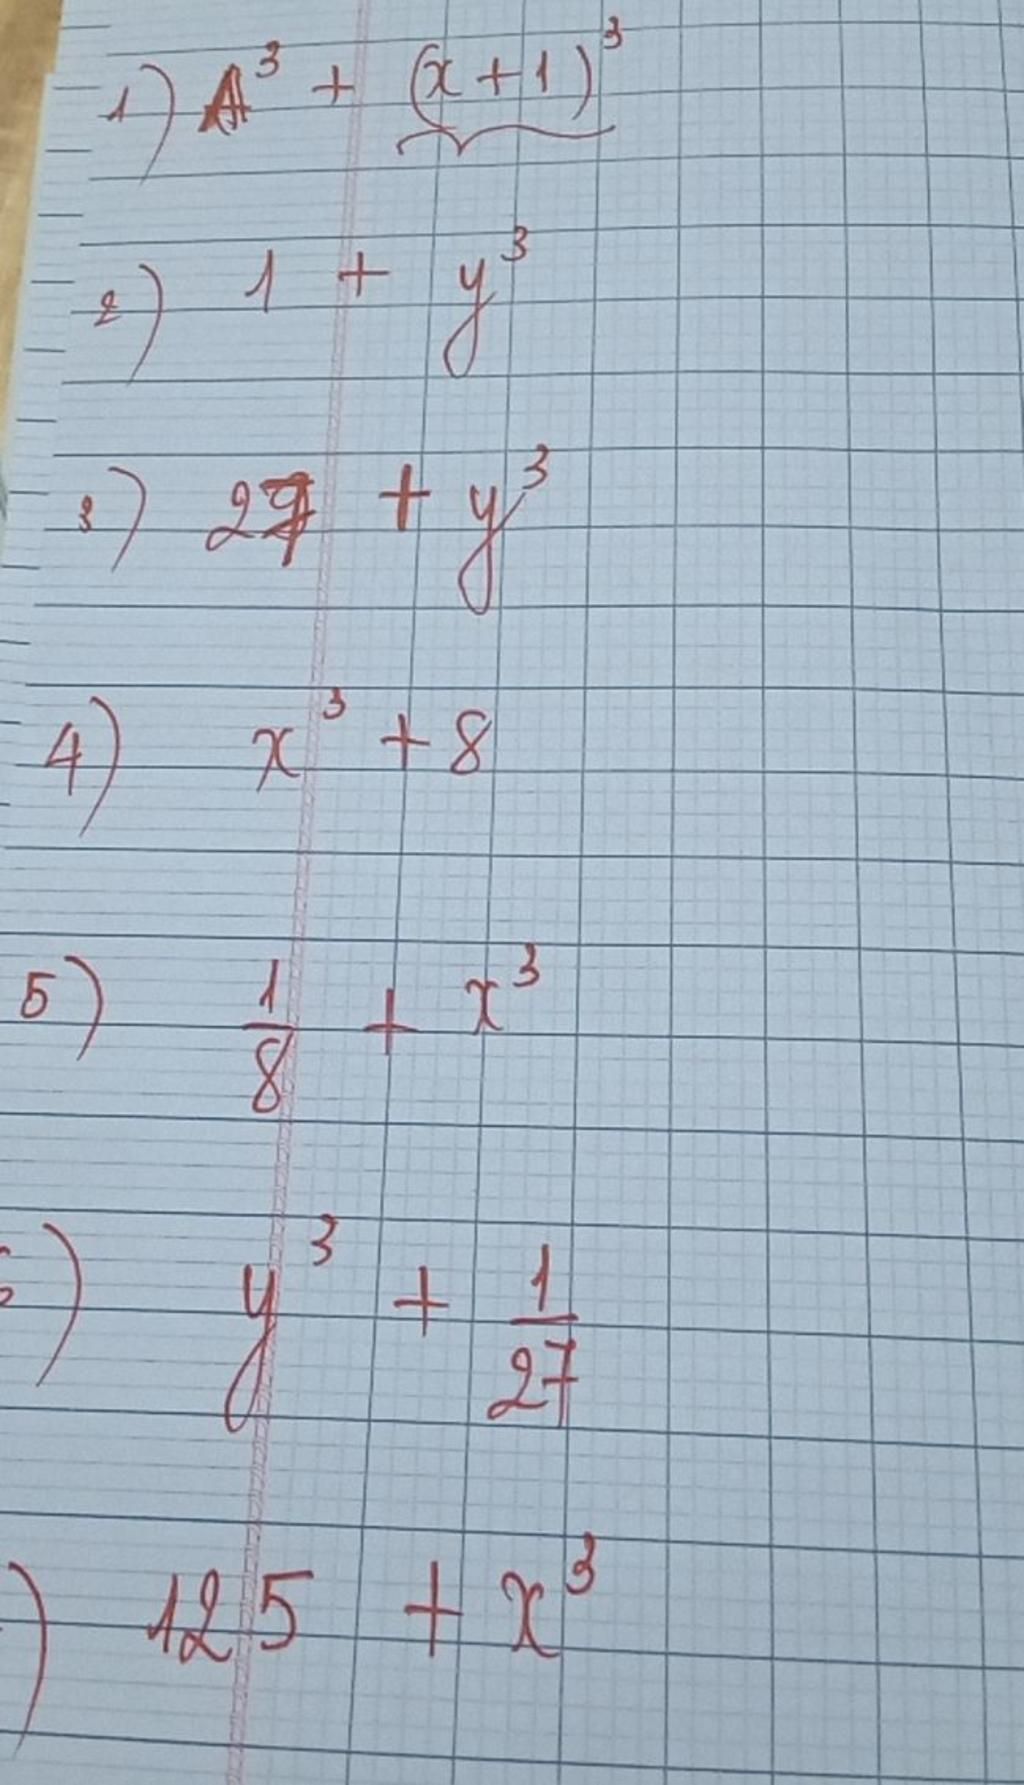 1) A³ + (x + 1)³
2) 1 + y³
3) 27 + y³
4) x³ + 8
5) 1/8 + x³
) y³ + 1/27
) 125 + x³